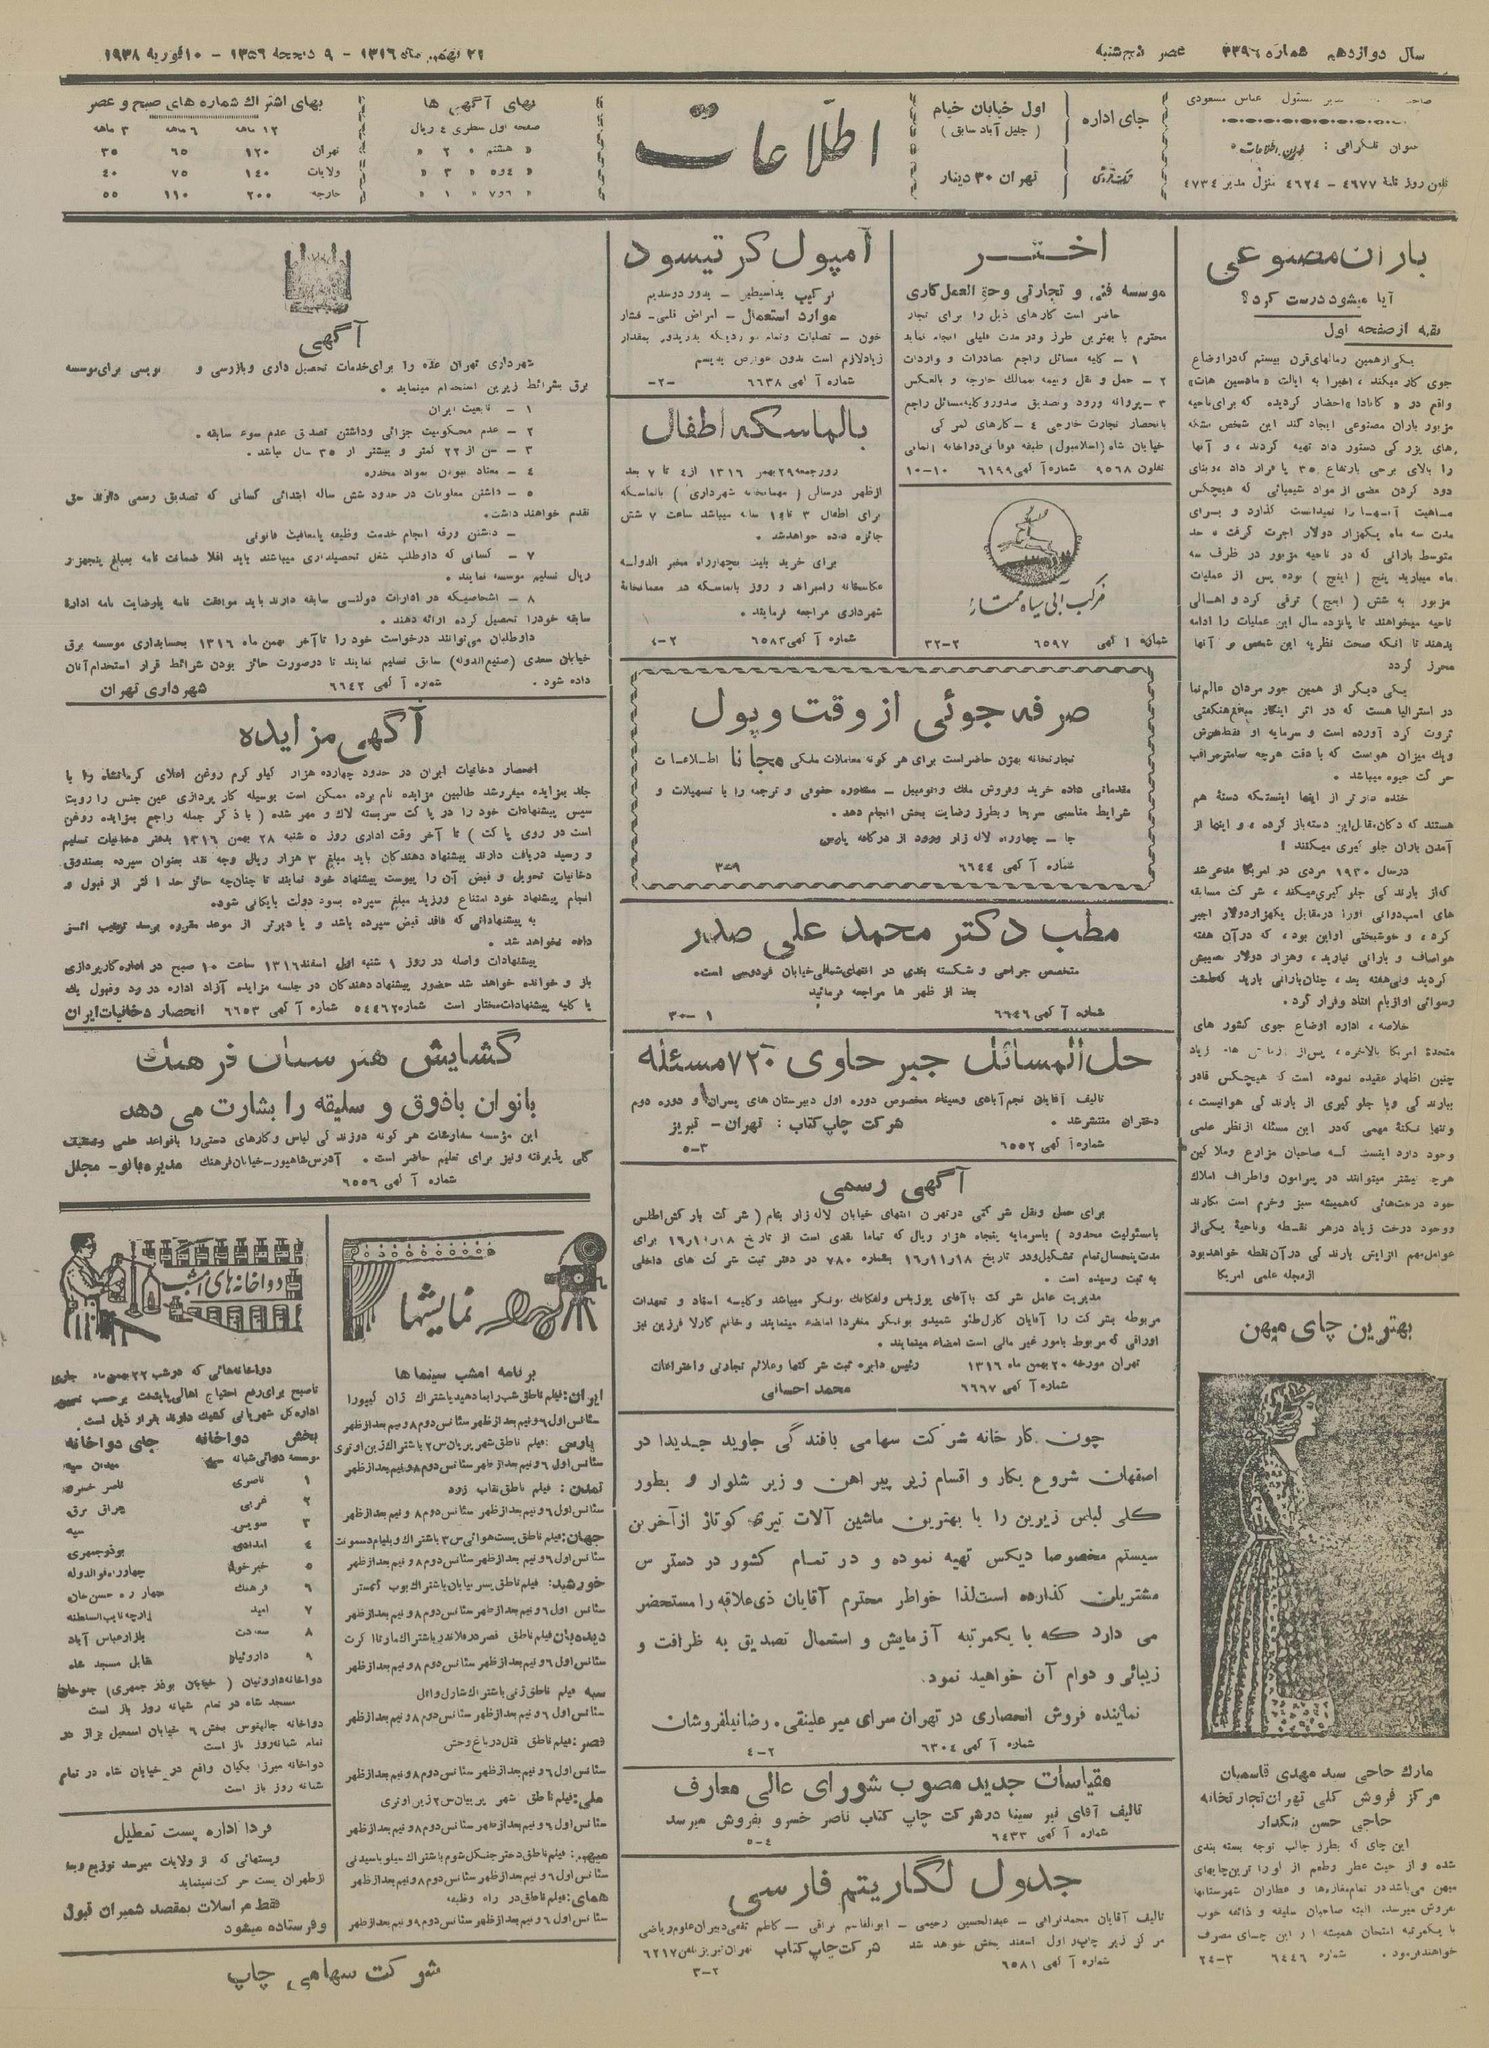 سال دوازدهم شماره ۳۳۹۶ عصر پنجشنبه
۲۱ بهمن ماه ۱۳۱۶ - ۹ ذیحجه ۱۳۵۶ - ۱۰ فوریه ۱۹۳۸
مدیر مسئول عباس مسعودی
عنوان تلگرافی : تهران اطلاعات
تلفن روزنامه ۴۶۷۷ - ۴۶۲۴ منزل مدیر ۴۷۳۴
جای اداره
اول خیابان خیام
( جلیل آباد سابق )
تکفروشی
تهران ۳۰ دینار
اطلاعات
بهای آگهی ها
صفحه اول سطری ٤ ریال
« هشتم « ۲ «
« ٤ و ٥ « ۳ «
« ۶ و ۷ « ۱ «
بهای اشتراك شماره های صبح و عصر
۱۲ ماهه ۶ ماهه ۳ ماهه
تهران ۱۲۰ ۶۵ ۳۵
ولایات ۱۴۰ ۷۵ ۴۰
خارجه ۲۰۰ ۱۱۰ ۵۵
باران مصنوعی
آیا میشود درست کرد؟
بقیه از صفحه اول
یکی از همین رمالهای قرن بیستم که در اوضاع
جوی کار میکند ، اخیرا به ایالت « مادسین هات»
واقع در « کانادا » احضار گردیده که برای ناحیه
مزبور باران مصنوعی ایجاد کند این شخص بشکه
های بزرگی دستور داد تهیه کردند ، و آنها
را بالای برجی بارتفاع ۳۵ پا قرار داد ، و بنای
دود کردن بعضی از مواد شیمیائی که هیچکس
ماهیت آنها را نمیدانست گذارد و برای
مدت سه ماه یکهزار دولار اجرت گرفت ، حد
متوسط بارانی که در ناحیه مزبور در ظرف سه
ماه میبارید پنج ( اینچ ) بوده پس از عملیات
مزبور به شش ( اینچ ) ترقی کرد و اهالی
ناحیه میخواهند تا پانزده سال این عملیات را ادامه
بدهند تا آنکه صحت نظریه این شخص بر آنها
محرز گردد
یکی دیگر از همین جور مردان عالم نما
در استرالیا هست که در اثر اینکار مبلغ هنگفتی
ثروت گرد آورده است و سرمایه او فقط هوش
ویك میزان هواست که با دقت هرچه تمامتر مراقب
حرکت جیوه میباشد .
خنده دار تر از اینها اینستکه دستهٔ هم
هستند که دکان مقابل این دسته باز کرده ، و اینها از
آمدن باران جلوگیری میکنند !
در سال ۱۹۳۰ مردی در امریکا مدعی شد
که از بارندگی جلوگیری میکند ، شرکت مسابقه
های اسب دوانی اورا در مقابل یکهزار دولار اجیر
کرد ، و خوشبختی او این بود ، که در آن هفته
هوا صاف و بارانی نیارید ، و هزار دولار نصیبش
گردید ولی هفته بعد ، چنان بارانی بارید که طشت
رسوائی او از بام افتاد و فرار کرد .
خلاصه ، اداره اوضاع جوی کشور های
متحدهٔ امریکا بالاخره ، پس از آزمایش های زیاد
چنین اظهار عقیده نموده است که هیچکس قادر
ببارندگی ویا جلوگیری از بارندگی هوا نیست ،
وتنها نکتهٔ مهمی که در این مسئله از نظر علمی
وجود دارد اینست که صاحبان مزارع و ملاکین
هرچه بیشتر میتوانند در پیرامون و اطراف املاك
خود درخت هائی که همیشه سبز و خرم است بکارند
و وجود درخت زیاد در هر نقطه و ناحیهٔ یکی از
عوامل مهم افزایش بارندگی در آن نقطه خواهد بود
از مجله علمی امریکا
بهترین چای میهن
مارك حاجی سید مهدی قاسمیان
مرکز فروش کلی تهران تجارتخانه
حاجی حسن بنکدار
این چای که بطرز جالب توجه بسته بندی
شده و از حیث عطر و طعم از اورا ترین چایهای
میهن می باشد در تمام مغازه ها و عطاران شهرستانها
بفروش میرسد. البته صاحبان سلیقه و ذائقه خوب
با یکمرتبه امتحان همیشه از این چای مصرف
خواهند فرمود . شماره ۶۴۴۶ ۳-۲۴
اختـر
موسسه فنی و تجارتی وحق العمل کاری
حاضر است کارهای ذیل را برای تجار
محترم با بهترین طرز و در مدت قلیلی انجام نماید
۱ - کلیه مسائل راجع بصادرات و واردات
۲ - حمل و نقل و بیمه بممالك خارجه و بالعکس
۳ - پروانه ورود و تصدیق صدور و کلیه مسائل راجع
بانحصار تجارت خارجی ۴ - کارهای گمرکی
خیابان شاه (اسلامبول) طبقه فوقانی دواخانه آلمانی
تلفون ۹۵۶۸ شماره آگهی ۶۱۹۹ ۱۰-۱۰
مرکب آبی سیاه ممتاز
شماره آگهی ۶۵۹۷ ۲-۳۲
آمپول کرتیسود
ترکیب
موارد استعمال - امراض قلبی - فشار
زیاد لازم است بدون عوارض بدهیم
شماره آگهی ۶۶۳۸ -۲-
بالماسکه اطفال
روز جمعه ۲۹ بهمن ۱۳۱۶ از ۴ تا ۷ بعد
از ظهر در سالن ( مهمانخانه شهرداری ) بالماسکه
برای اطفال ۳ تا ۱۶ ساله میباشد ساعت ۷ شش
جائزه داده خواهد شد .
برای خرید بلیت بچهارراه مخبر الدوله
عکاسخانه رامبراند و روز بالماسکه در مهمانخانهٔ
شهرداری مراجعه فرمایند .
شماره آگهی ۶۵۸۳ ۲-۴
صرفه جوئی از وقت و پول
تجارتخانه بهزن حاضر است برای هر گونه معاملات ملکی مجانا اطلاعات
مقدماتی داده خرید و فروش ملك و اتومبیل - مشاوره حقوقی و ترجمه را با تسهیلات و
شرایط مناسبی سریعا و بطرز رضایت بخش انجام دهد .
جا - چهارراه لاله زار ورود از درگاه پارس
شماره آگهی ۶۶۴۴
مطب دکتر محمد علی صدر
متخصص جراحی و شکسته بندی در انتهای شمالی خیابان فردوسی است.
بعد از ظهر ها مراجعه فرمائید
شماره آگهی ۶۶۴۶ ۱-۳۰
حل المسائل جبر حاوی ۷۲۰ مسئله
تالیف آقایان نجم آبادی و سیناء مخصوص دوره اول دبیرستان های پسران و دوره دوم
دختران منتشر شد . شرکت چاپ کتاب : تهران - تبریز
شماره آگهی ۶۵۵۲ ۳-۵
آگهی رسمی
برای حمل و نقل شرکتی در تهران انتهای خیابان لاله زار بنام ( شرکت بارکش اطلس
با مسئولیت محدود ) با سرمایه پنجاه هزار ریال که تماما نقدی است از تاریخ ۱۸ر۱۰ر۱۶ برای
مدت پنجسال تمام تشکیل و در تاریخ ۱۸ر۱۱ر۱۶ بشماره ۷۸۰ در دفتر ثبت شرکت های داخلی
به ثبت رسیده است .
مدیریت عامل شرکت با آقای یوزپس ولفکانك بونکر میباشد و کلیه اسناد و تعهدات
مربوطه بشرکت را آقایان کارل طئو شمیدو بونکر منفردا امضاء مینمایند و خانم کارلا فرزین نیز
اوراقی که مربوط بامور غیر مالی است امضاء مینمایند .
تهران مورخه ۲۰ بهمن ماه ۱۳۱۶ رئیس دایره ثبت شرکتها و علائم تجارتی و اختراعات
شماره آگهی ۶۶۶۷ محمد احسانی
چون کارخانه شرکت سهامی بافندگی جاوید جدیدا در
اصفهان شروع بکار و اقسام زیر پیراهن و زیر شلوار و بطور
کلی لباس زیرین را با بهترین ماشین آلات تیری کوتاژ از آخرین
سیستم مخصوصا دیکس تهیه نموده و در تمام کشور در دسترس
مشتریان گذارده است لذا خواطر محترم آقایان ذی علاقه را مستحضر
می دارد که با یکمرتبه آزمایش و استعمال تصدیق به ظرافت و
زیبائی و دوام آن خواهید نمود.
نماینده فروش انحصاری در تهران سرای میر علینقی . رضا نیلفروشان
شماره آگهی ۶۳۰۴ ۲-۴
مقیاسات جدید مصوب شورای عالی معارف
تالیف آقای نیر سینا در شرکت چاپ کتاب ناصر خسرو بفروش میرسد
شماره آگهی ۶۴۳۳ ۴-۵
جدول لگاریتم فارسی
تالیف آقایان محمد نراقی - عبدالحسین رحیمی - ابوالقاسم نراقی - کاظم نلفی دبیران علوم ریاضی
مرکز زیر چاپ در اول اسفند پخش خواهد شد شرکت چاپ کتاب تهران تبریز تلفن ۶۲۱۷
شماره آگهی ۶۵۸۱ ۲-۳
آگهی
شهرداری تهران عده را برای خدمات تحصیل داری و بازرسی و نویسی برای موسسه
برق بشرائط زیرین استخدام مینماید .
۱ - تابعیت ایران
۲ - عدم محکومیت جزائی و داشتن تصدیق عدم سوء سابقه .
۳ - سن از ۲۲ کمتر و بیشتر از ۳۵ سال نباشد .
۴ - معتاد نبودن بمواد مخدره
۵ - داشتن معلومات در حدود شش ساله ابتدائی کسانی که تصدیق رسمی دارند حق
تقدم خواهند داشت.
- داشتن ورقه انجام خدمت وظیفه یا معافیت قانونی
۷ - کسانی که داوطلب شغل تحصیلداری میباشند باید اقلا ضمانت نامه بمبلغ پنجهزار
ریال تسلیم موسسه نمایند .
۸ - اشخاصیکه در ادارات دولتی سابقه دارند باید موافقت نامه یا رضایت نامه ادارهٔ
سابقه خود را تحصیل کرده ارائه دهند .
داوطلبان می توانند درخواست خود را تا آخر بهمن ماه ۱۳۱۶ بحسابداری موسسه برق
خیابان سعدی (صنیع الدوله) سابق تسلیم نمایند تا در صورت حائز بودن شرائط قرار استخدام آنان
داده شود . شماره آگهی ۶۶۴۲ شهرداری تهران
آگهی مزایده
انحصار دخانیات ایران در حدود چهارده هزار کیلو گرم روغن اعلای کرمانشاه را با
جلد بمزایده میفروشد طالبین مزایده نام برده ممکن است بوسیله کار پردازی عین جنس را رویت
سپس پیشنهادات خود را در پاکت سربسته لاك و مهر شده ( با ذکر جمله راجع بمزایده روغن
است در روی پاکت ) تا آخر وقت اداری روز ۵ شنبه ۲۸ بهمن ۱۳۱۶ بدفتر دخانیات تسلیم
و رسید دریافت دارند پیشنهاد دهندگان باید مبلغ ۳ هزار ریال وجه نقد بعنوان سپرده بصندوق
دخانیات تحویل و قبض آن را پیوست پیشنهاد خود نمایند تا چنان چه حائز حد ا کثر از قبول و
انجام پیشنهاد خود امتناع ورزید مبلغ سپرده بسود دولت بایگانی شود.
به پیشنهاداتی که فاقد قبض سپرده باشد و یا دیرتر از موعد مقرره برسد ترتیب اثری
داده نخواهد شد .
پیشنهادات واصله در روز ۱ شنبه اول اسفند ۱۳۱۶ ساعت ۱۰ صبح در اداره کارپردازی
باز و خوانده خواهد شد حضور پیشنهاد دهندگان در جلسه مزایده آزاد اداره در رد و قبول یك
یا کلیه پیشنهادات مختار است شماره ۵۴۴۶۲ شماره آگهی ۶۶۵۳ انحصار دخانیات ایران
گشایش هنرستان فرهنك
بانوان باذوق و سلیقه را بشارت می دهد
این مؤسسه سفارشات هر گونه دوزندگی لباس و کارهای دستی را با قواعد علمی و
گلی پذیرفته و نیز برای تعلیم حاضر است . آدرس شاهپور - خیابان فرهنك مدیره بانو - مجلل
شماره آگهی ۶۵۵۶
نمایشها
برنامه امشب سینما ها
ایران : فیلم ناطق شب را بما دهید باشتراك ژان کیپورا
سئانس اول ۶ و نیم بعد از ظهر سئانس دوم ۸ و نیم بعد از ظهر
پارسی : فیلم ناطق شهر پریان س ۲ باشتراك ژین اوتری
سئانس اول ۶ و نیم بعد از ظهر سئانس دوم ۸ و نیم بعد از ظهر
تمدن : فیلم ناطق نقاب زرد
سئانس اول ۶ و نیم بعد از ظهر سئانس دوم ۸ و نیم بعد از ظهر
جهان : فیلم ناطق پست هوائی س ۳ باشتراك ویلیام دسموند
سئانس اول ۶ و نیم بعد از ظهر سئانس دوم ۸ و نیم بعد از ظهر
خورشید : فیلم ناطق پسر بیابان باشتراك بوب کستر
سئانس اول ۶ و نیم بعد از ظهر سئانس دوم ۸ و نیم بعد از ظهر
دیده بان فیلم ناطق قصر در فلاندر باشتراك مارتا اگرت
سئانس اول ۶ و نیم بعد از ظهر سئانس دوم ۸ و نیم بعد از ظهر
سپه فیلم ناطق ژنی باشتراك شارل وانل
سئانس اول ۶ و نیم بعد از ظهر سئانس دوم ۸ و نیم بعد از ظهر
قصر : فیلم ناطق قتل در باغ وحش
سئانس اول ۶ و نیم بعد از ظهر سئانس دوم ۸ و نیم بعد از ظهر
ملی : فیلم ناطق شهر پریان س ۲ ژین اوتری
سئانس اول ۶ و نیم بعد از ظهر سئانس دوم ۸ و نیم بعد از ظهر
میهن : فیلم ناطق دختر جنگل شوم باشتراك سیلویا سیدنی
سئانس اول ۶ و نیم بعد از ظهر سئانس دوم ۸ و نیم بعد از ظهر
همای : فیلم ناطق در راه وظیفه
سئانس اول ۶ و نیم بعد از ظهر سئانس دوم ۸ و نیم بعد از ظهر
دواخانه های امشب
دواخانه هائی که در شب ۲۲ بهمن ماه جاری
تا صبح برای رفع احتیاج اهالی پایتخت برحسب
اداره کل شهربانی کشیك دارند بقرار ذیل است
بخش دواخانه جای دواخانه
موسسه دوائی شبانه سپه میدان سپه
۱ ناصری ناصر خسرو
۲ غربی چراغ برق
۳ سویس سپه
۴ امدادی بوذرجمهری
۵ خیرخواه
۶ فرهنك چهار راه حسن خان
۷ امید بازارچه نایب السلطنه
۸ سعادت بازار عباس آباد
۹ داروئیان مقابل مسجد شاه
دواخانه داروئیان ( خیابان بوذرجمهری ) جلوخان
مسجد شاه در تمام شبانه روز باز است
دواخانه جالینوس بخش ۶ خیابان اسمعیل بزاز در
تمام شبانه روز باز است
دواخانه میرزا بکیان واقع در خیابان شاه در تمام
شبانه روز باز است
فردا اداره پست تعطیل
و پستهائی که از ولایات میرسد توزیع و بعد
از طهران پست حرکت نمینماید
فقط مراسلات بمقصد شمیران قبول
و فرستاده میشود
شرکت سهامی چاپ